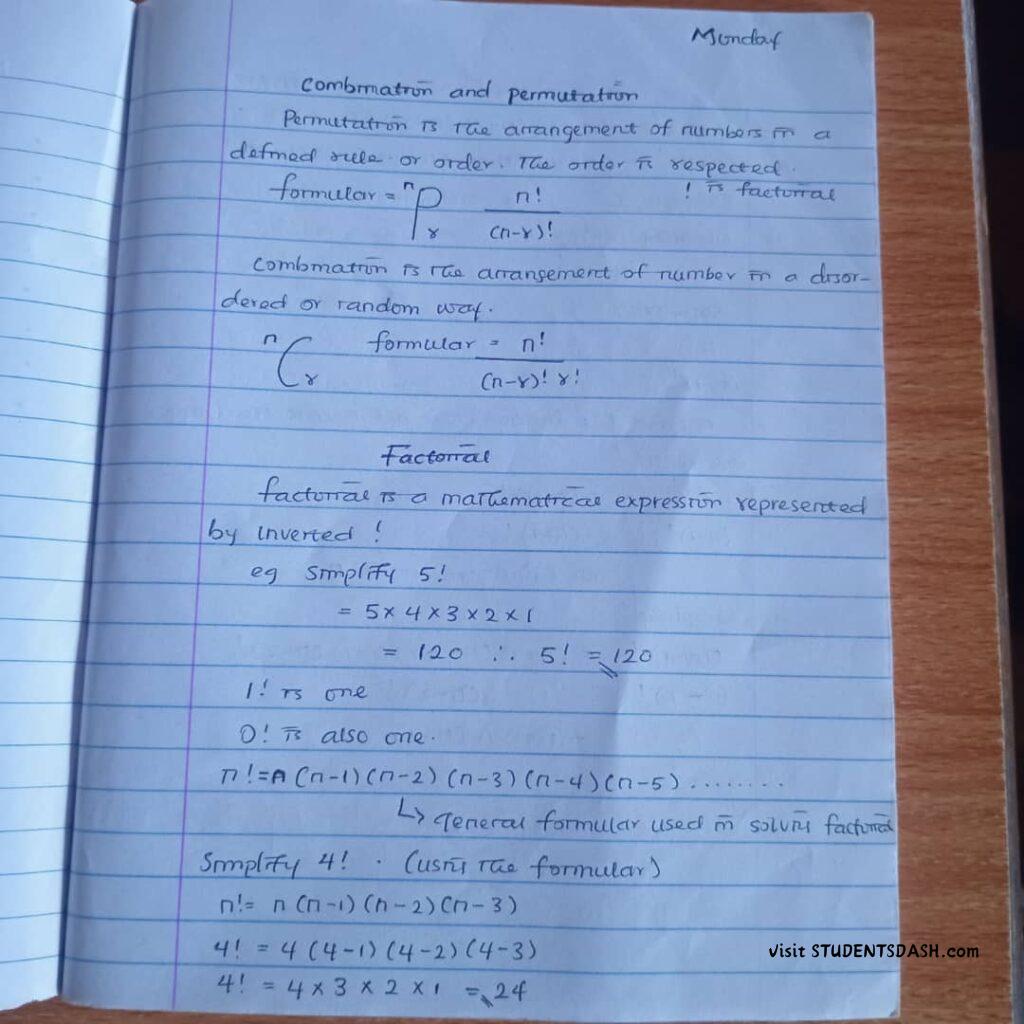 Monday
Combination and permutation
Permutation is the arrangement of numbers in a
defined rule or order. The order is respected.
formular = ⁿPᵣ n!/(n-r)! ! is factorial
Combination is the arrangement of number in a disor-
dered or random way.
ⁿCᵣ formular = n!/(n-r)! r!
Factorial
factorial is a mathematical expression represented
by inverted !
eg Simplify 5!
= 5 × 4 × 3 × 2 × 1
= 120 ∴ 5! = 120
1! is one
0! is also one.
n! = n (n-1) (n-2) (n-3) (n-4) (n-5) ........
↳ General formular used in solving factorial
Simplify 4! . (using the formular)
n! = n (n-1) (n-2) (n-3)
4! = 4 (4-1) (4-2) (4-3)
4! = 4 × 3 × 2 × 1 = 24
visit STUDENTSDASH.com